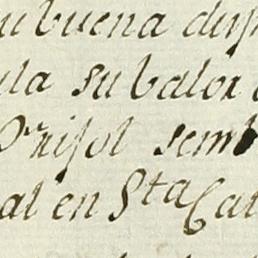 su buena disp
ula su balor
Frisol semb
al en Sta Cat